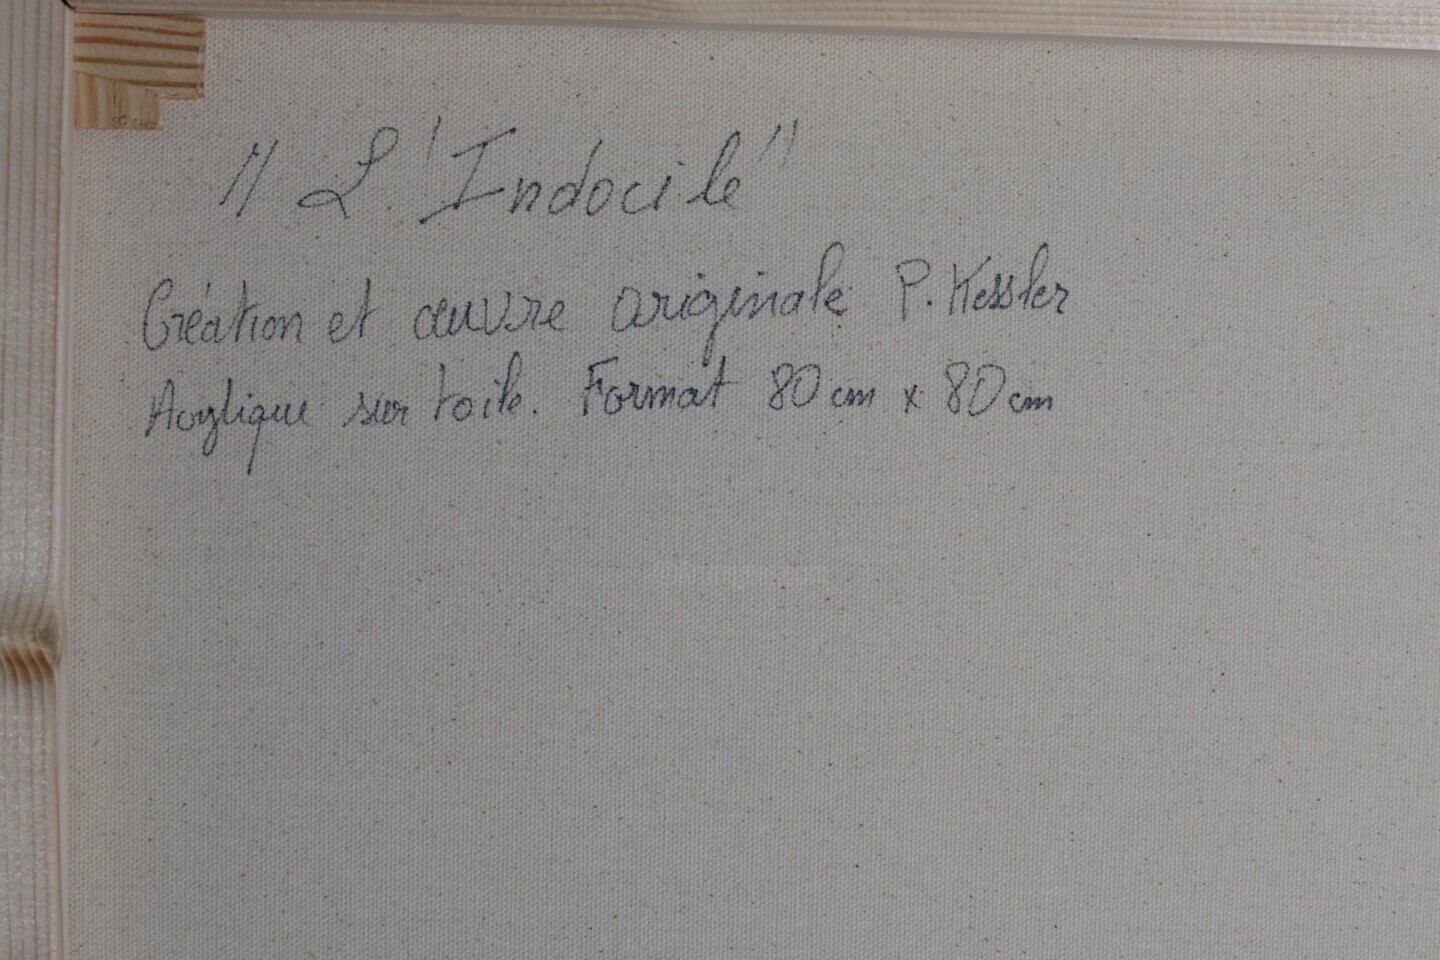 "L'Indocile"
Création et œuvre originale P. Kessler
Acrylique sur toile. Format 80 cm x 80 cm